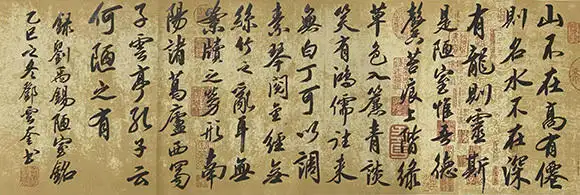 山不在高有僊
則名水不在深
有龍則靈斯
是陋室惟吾德
馨苔痕上階緑
草色入簾青談
笑有鴻儒往来
無白丁可以調
素琴閲金經無
絲竹之亂耳無
案牘之勞形南
陽諸葛廬西蜀
子雲亭孔子云
何陋之有
録劉禹錫陋室銘
乙巳之冬鄧雲奎书